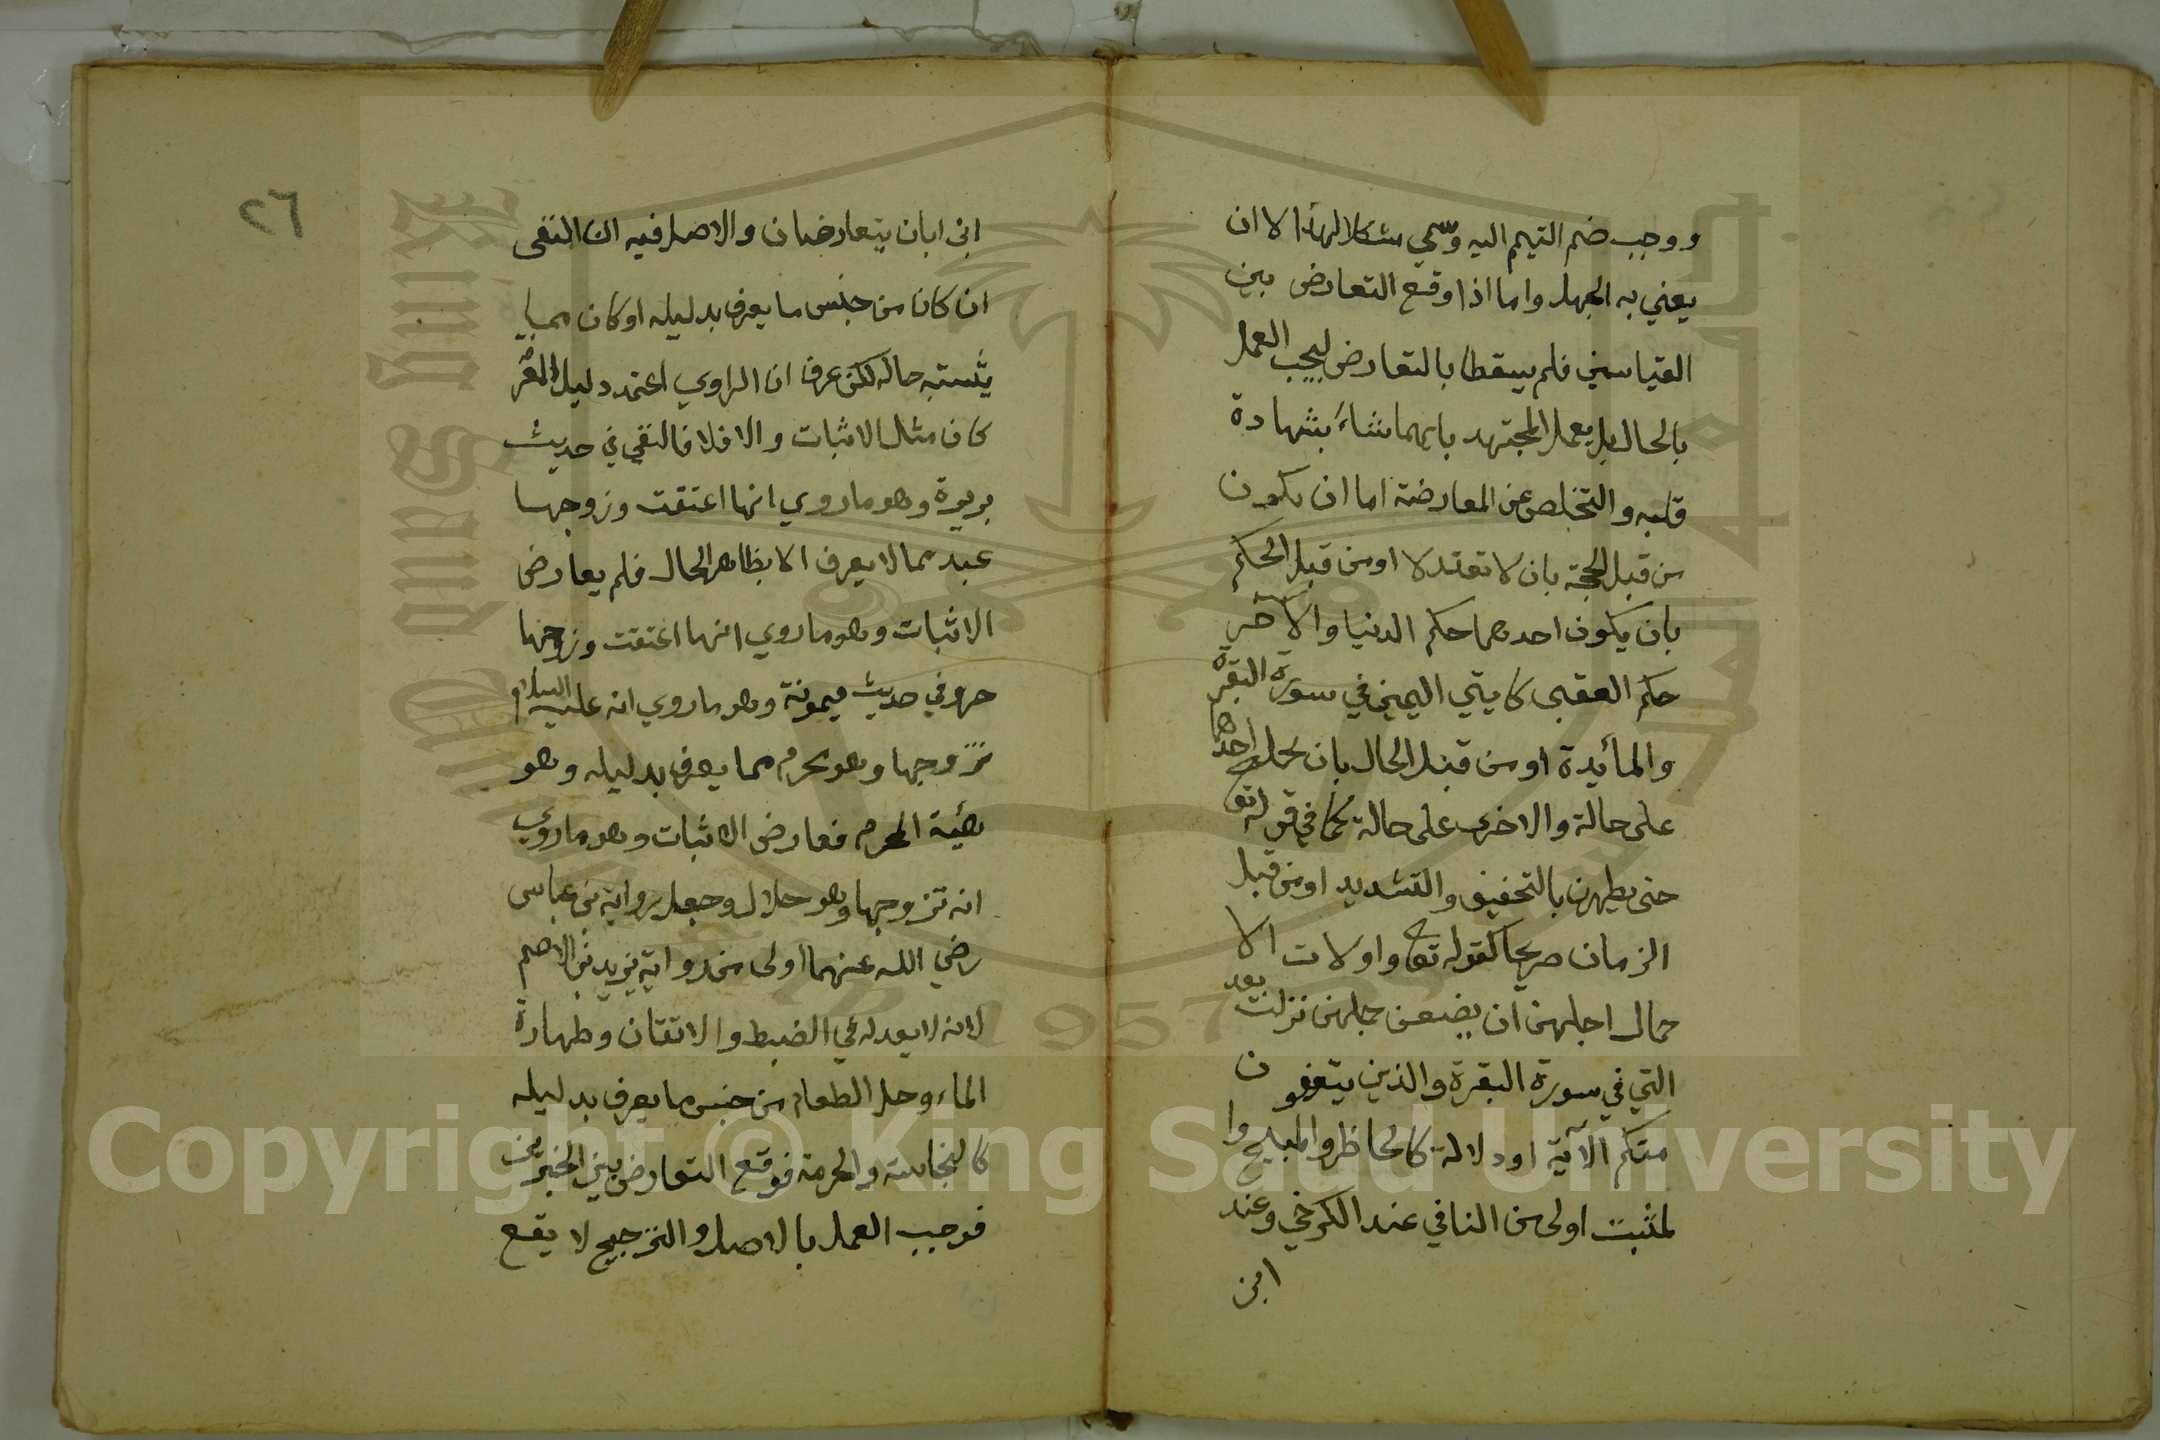 ووجب ضم التيم اليه وسمي مشكلا لهذا لا ان
يعني به الجهل واما اذا وقع التعارض بين
القياسين فلم يسقطا بالتعارض ليجب العمل
بالحال بل يعمل المجتهد بايهما شاء بشهادة
قلبه والتخلص عن المعارضة اما ان يكون
من قبل الحجة بان لا تعتدلا او من قبل الحكم
بان يكون احدهما حكم الدنيا والاخر
حكم العقبى كايتي اليمين في سورة البقرة
والمأيدة او من قبل الحال بان يحمل احدهما
على حالة والاخرى على حالة كما في قوله تع
حتى يطهرن بالتخفيف والتشديد او من قبل
الزمان صريحا كقوله تع واولات الا
حمال اجلهن ان يضعن حملهن نزلت بعد
التي في سورة البقرة والذين يتوفون
منكم الآية او دلالة كالحاظر والمبيح وا
لمثبت اولى من النافي عند الكرخي وعند
ابن
٢٦
ابن ابان يتعارضان والاصل فيه ان النفى
ان كان من جنس ما يعرف بدليله او كان مما
يشتبه حاله لكن عرف ان الراوي اعتمد دليل المعر
كان مثل الاثبات والا فلا فالنفي في حديث
بريرة وهو ما روي انها اعتقت وزوجها
عبد مما لا يعرف الا بظاهر الحال فلم يعارض
الاثبات وهو ما روي انها اعتقت وزوجها
حر وفي حديث ميمونة وهو ما روي انه عليه السلام
تزوجها وهو محرم مما يعرف بدليله وهو
هئية المحرم فعارض الاثبات وهو ما روي
انه تزوجها وهو حلال وجعل رواية بن عباس
رضي الله عنهما أولى من رواية يزيد بن الاصم
لانه لا يعدله في الضبط والاتقان وطهارة
الماء وحل الطعام من جنس ما يعرف بدليله
كالنجاسة والحرمة فوقع التعارض بين الخبرين
فوجب العمل بالاصل والترجيح لا يقع
Copyright © King Saud University
King Saud University
1957